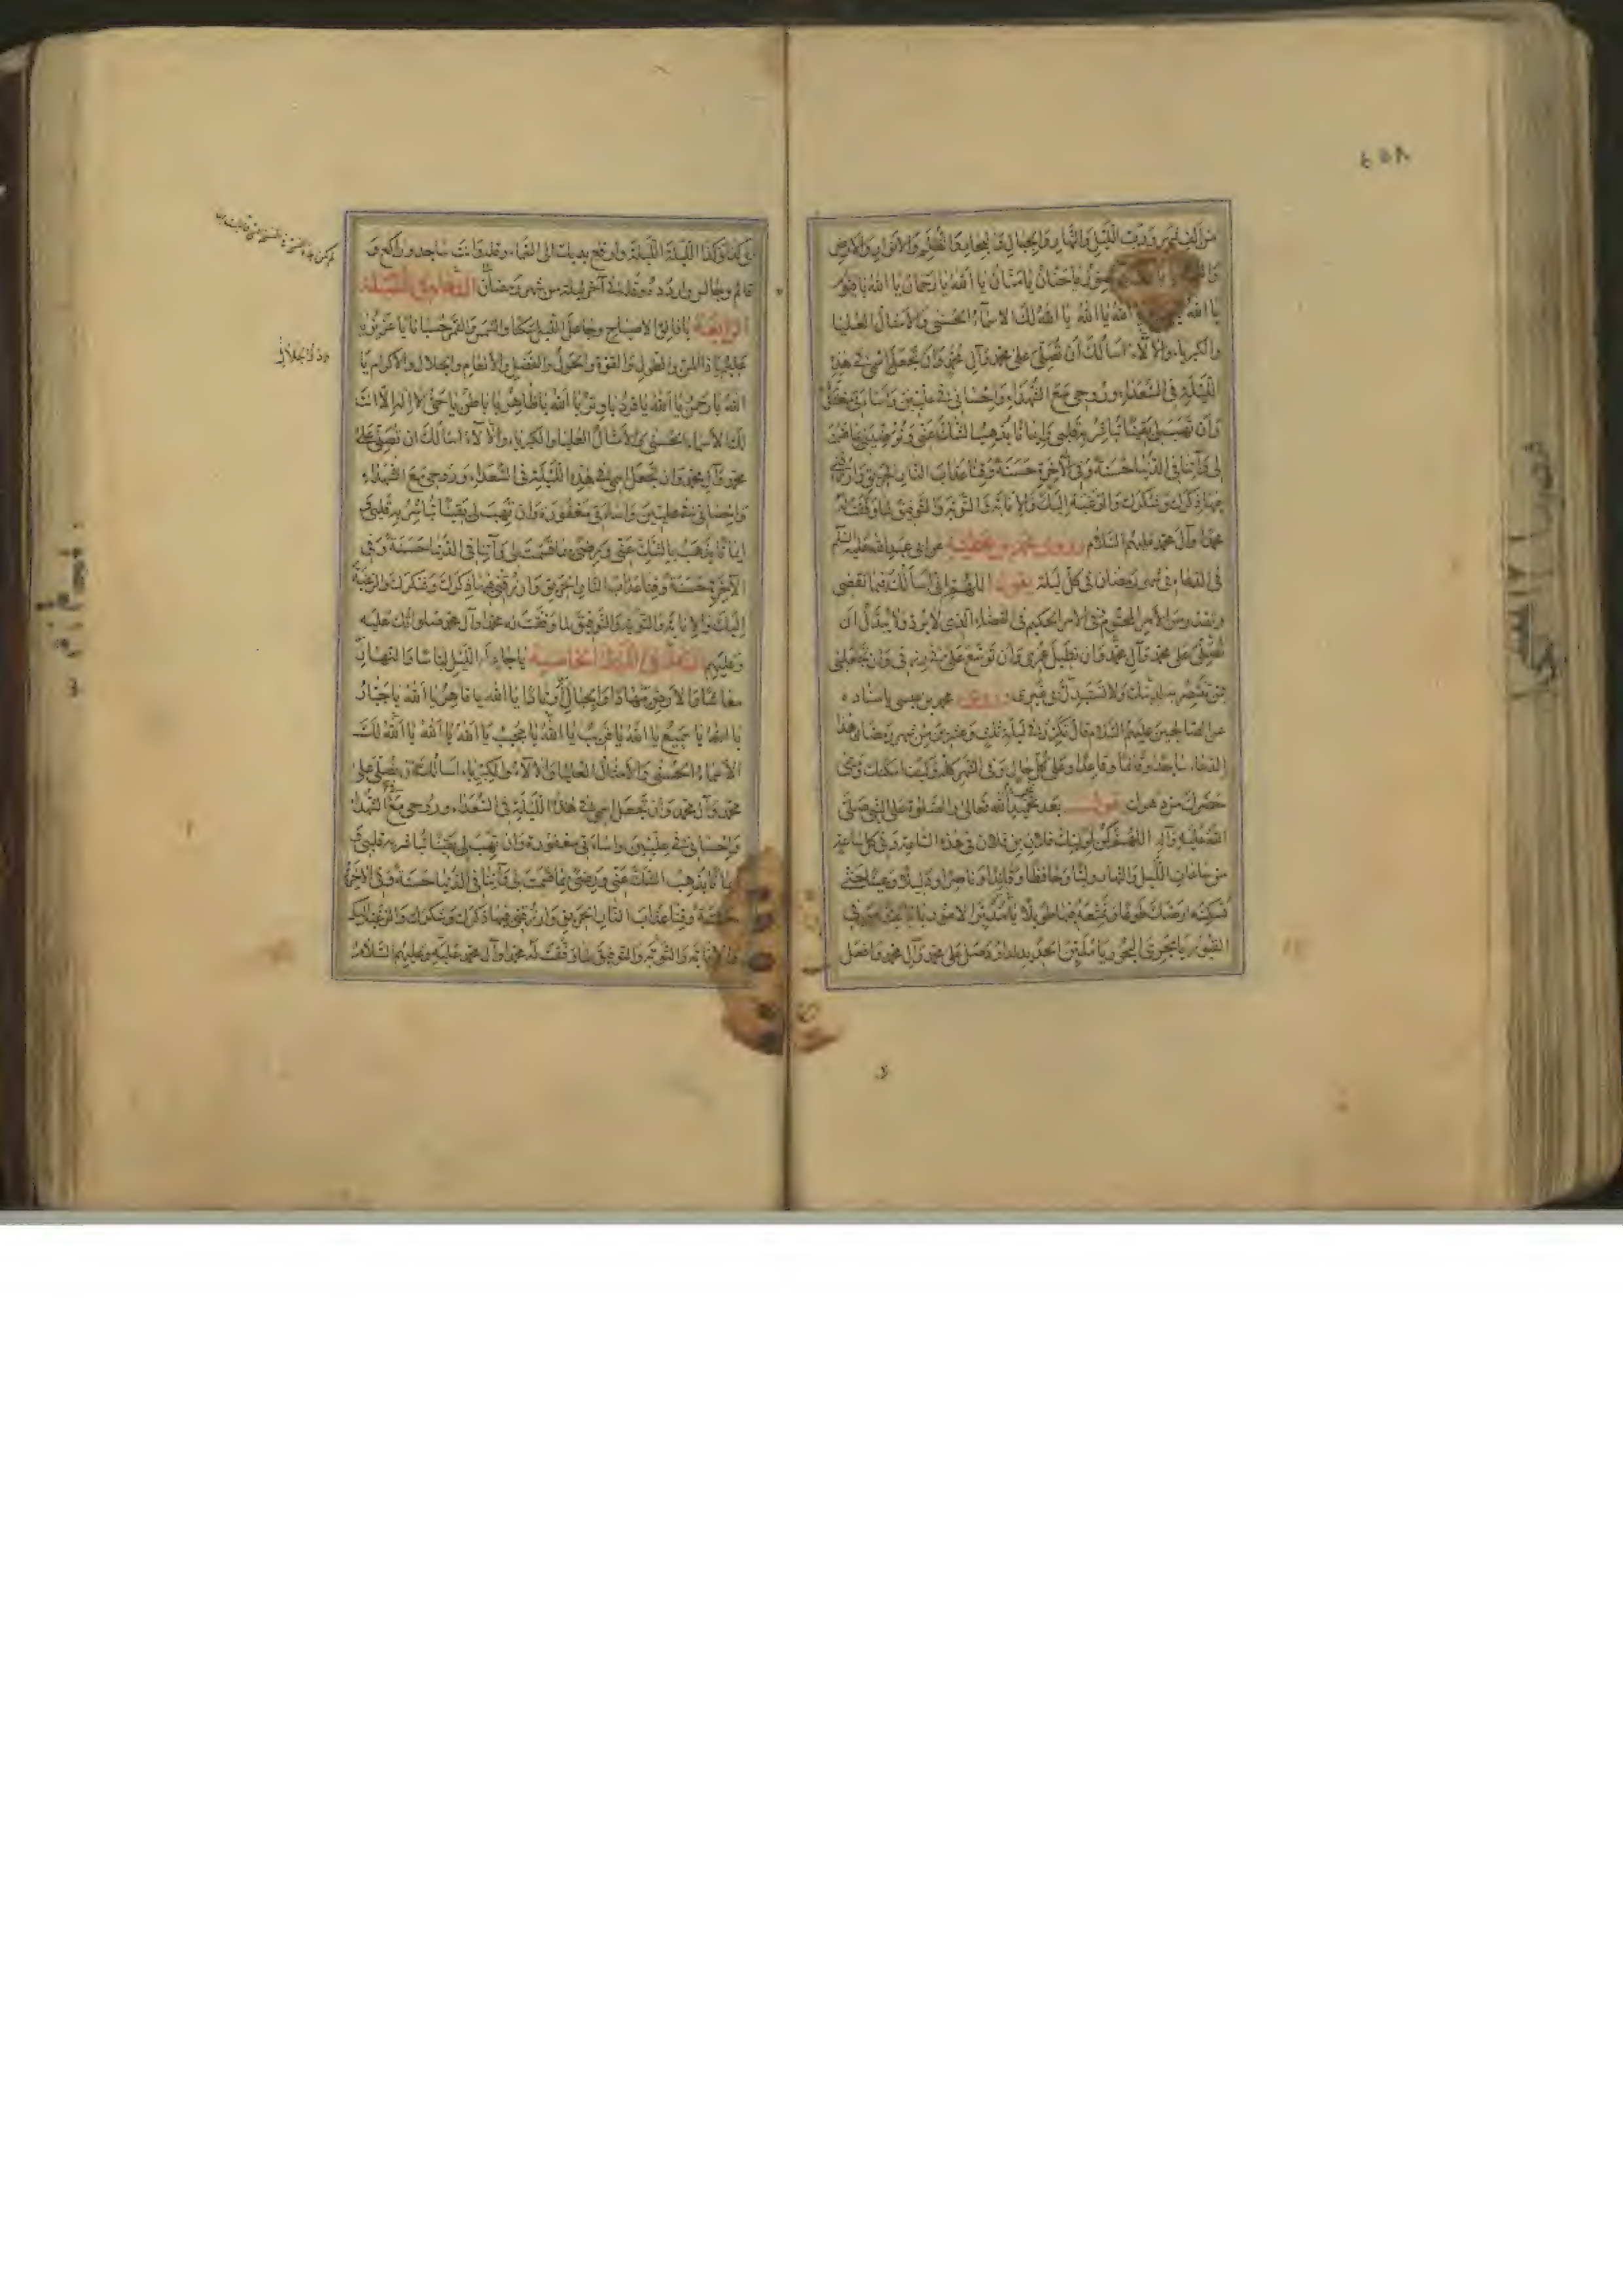 من الف شهر ورب الليل والنهار والجبال والبحار والظلم والانوار والارض
يا حنان يا منان يا الله يا رحمان يا الله يا قيوم
يا الله يا الله يا الله لك الاسماء الحسنى والامثال العليا
والكبرياء والآلاء اسألك ان تصلى على محمد وآل محمد وان تجعل اسمى فى هذه
الليلة فى السعداء وروحى مع الشهداء واحسانى فى عليين واساءتى مغفورة
وان تهب لى يقينا تباشر به قلبى وايمانا يذهب الشك عنى وترضينى بما قسمت
لى وآتنا فى الدنيا حسنة وفى الآخرة حسنة وقنا عذاب النار الحريق وارزقنى
فيها ذكرك وشكرك والرغبة اليك والانابة والتوبة والتوفيق لما وفقت له
محمدا وآل محمد عليهم السلام وروى محمد بن عطية عن ابى عبد الله عليه السلم
فى الدعاء فى شهر رمضان فى كل ليلة يقول اللهم انى اسألك فيما تقضى
وتقدر من الامر المحتوم فى الامر الحكيم فى القضاء الذى لا يرد ولا يبدل ان
تصلى على محمد وآل محمد وان تطيل عمرى وان توسع على فى رزقى وان تجعلنى
ممن تنتصر به لدينك ولا تستبدل بى غيرى وروى محمد بن عيسى باسناده
عن الصالحين عليهم السلام قال تكرر فى ليلة ثلث وعشرين من شهر رمضان هذا
الدعاء ساجدا وقائما وقاعدا وعلى كل حال وفى الشهر كله وكيف امكنك ومتى
حضرك من دهرك تقول بعد تحميد الله تعالى والصلوة على النبى صلى
الله عليه وآله اللهم كن لوليك فلان بن فلان فى هذه الساعة وفى كل ساعة
من ساعات الليل والنهار وليا وحافظا وقائدا وناصرا ودليلا وعينا حتى
تسكنه ارضك طوعا وتمتعه فيها طويلا يا مدبر الامور يا باعث من فى
القبور يا مجرى البحور يا ملين الحديد لداود صل على محمد وآل محمد وافعل
بى كذا وكذا الليلة الليلة وارفع يديك الى السماء وقله وانت ساجد وراكع و
قائم وجالس وردده وقله فى آخر ليلة من شهر رمضان الدعاء فى الليلة
الرابعة يا فالق الاصباح وجاعل الليل سكنا والشمس والقمر حسبانا يا عزيز يا
عليم يا ذا المن والطول والقوة والحول والفضل والانعام والجلال والاكرام يا
الله يا رحمن يا الله يا فرد يا وتر يا الله يا ظاهر يا باطن يا حى لا اله الا انت
لك الاسماء الحسنى والامثال العليا والكبرياء والآلاء اسألك ان تصلى على
محمد وآل محمد وان تجعل اسمى فى هذه الليلة فى السعداء وروحى مع الشهداء
واحسانى فى عليين واساءتى مغفورة وان تهب لى يقينا تباشر به قلبى و
ايمانا يذهب بالشك عنى ورضى بما قسمت لى وآتنا فى الدنيا حسنة وفى
الآخرة حسنة وقنا عذاب النار الحريق وارزقنى فيها ذكرك وشكرك والرغبة
اليك والانابة والتوبة والتوفيق لما وفقت له محمدا وآل محمد صلواتك عليه
وعليهم الدعاء فى الليلة الخامسة يا جاعل الليل لباسا والنهار
معاشا والارض مهادا والجبال اوتادا يا الله يا قاهر يا الله يا جبار
يا الله يا سميع يا الله يا قريب يا الله يا مجيب يا الله يا الله يا الله لك
الاسماء الحسنى والامثال العليا والآلاء والكبرياء اسألك ان تصلى على
محمد وآل محمد وان تجعل اسمى فى هذه الليلة فى السعداء وروحى مع الشهداء
واحسانى فى عليين واساءتى مغفورة وان تهب لى يقينا تباشر به قلبى و
ايمانا يذهب الشك عنى ورضى بما قسمت لى وآتنا فى الدنيا حسنة وفى الآخرة
حسنة وقنا عذاب النار الحريق وارزقنى فيها ذكرك وشكرك والرغبة اليك
والانابة والتوبة والتوفيق لما وفقت له محمدا وآل محمد عليه وعليهم السلام